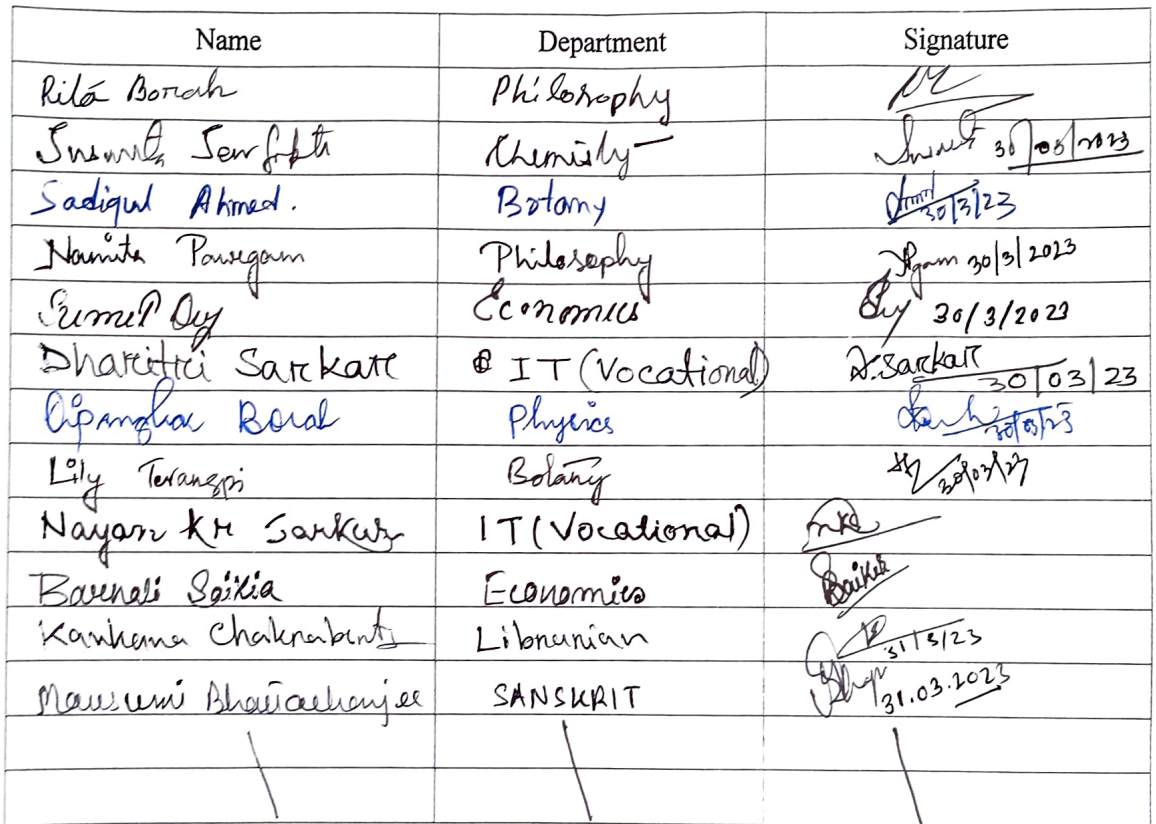 Name Department Signature
Rita Borah Philosophy
Susmita Sengupta Chemistry 30/03/2023
Sadiqul Ahmed. Botany 30/3/23
Namita Pawegam Philosophy Pgam 30/3/2023
Sumit Dey Economics Dey 30/3/2023
Dharitri Sarkar IT (Vocational) D.Sarkar 30/03/23
Dipangkar Borah Physics 30/03/23
Lily Terangpi Botany 30/03/23
Nayan Kr Sarkar IT (Vocational) NKS
Barnali Saikia Economics BSaikia
Kankana Chakraborty Librarian 31/3/23
Mausumi Bhattacharjee SANSKRIT 31.03.2023